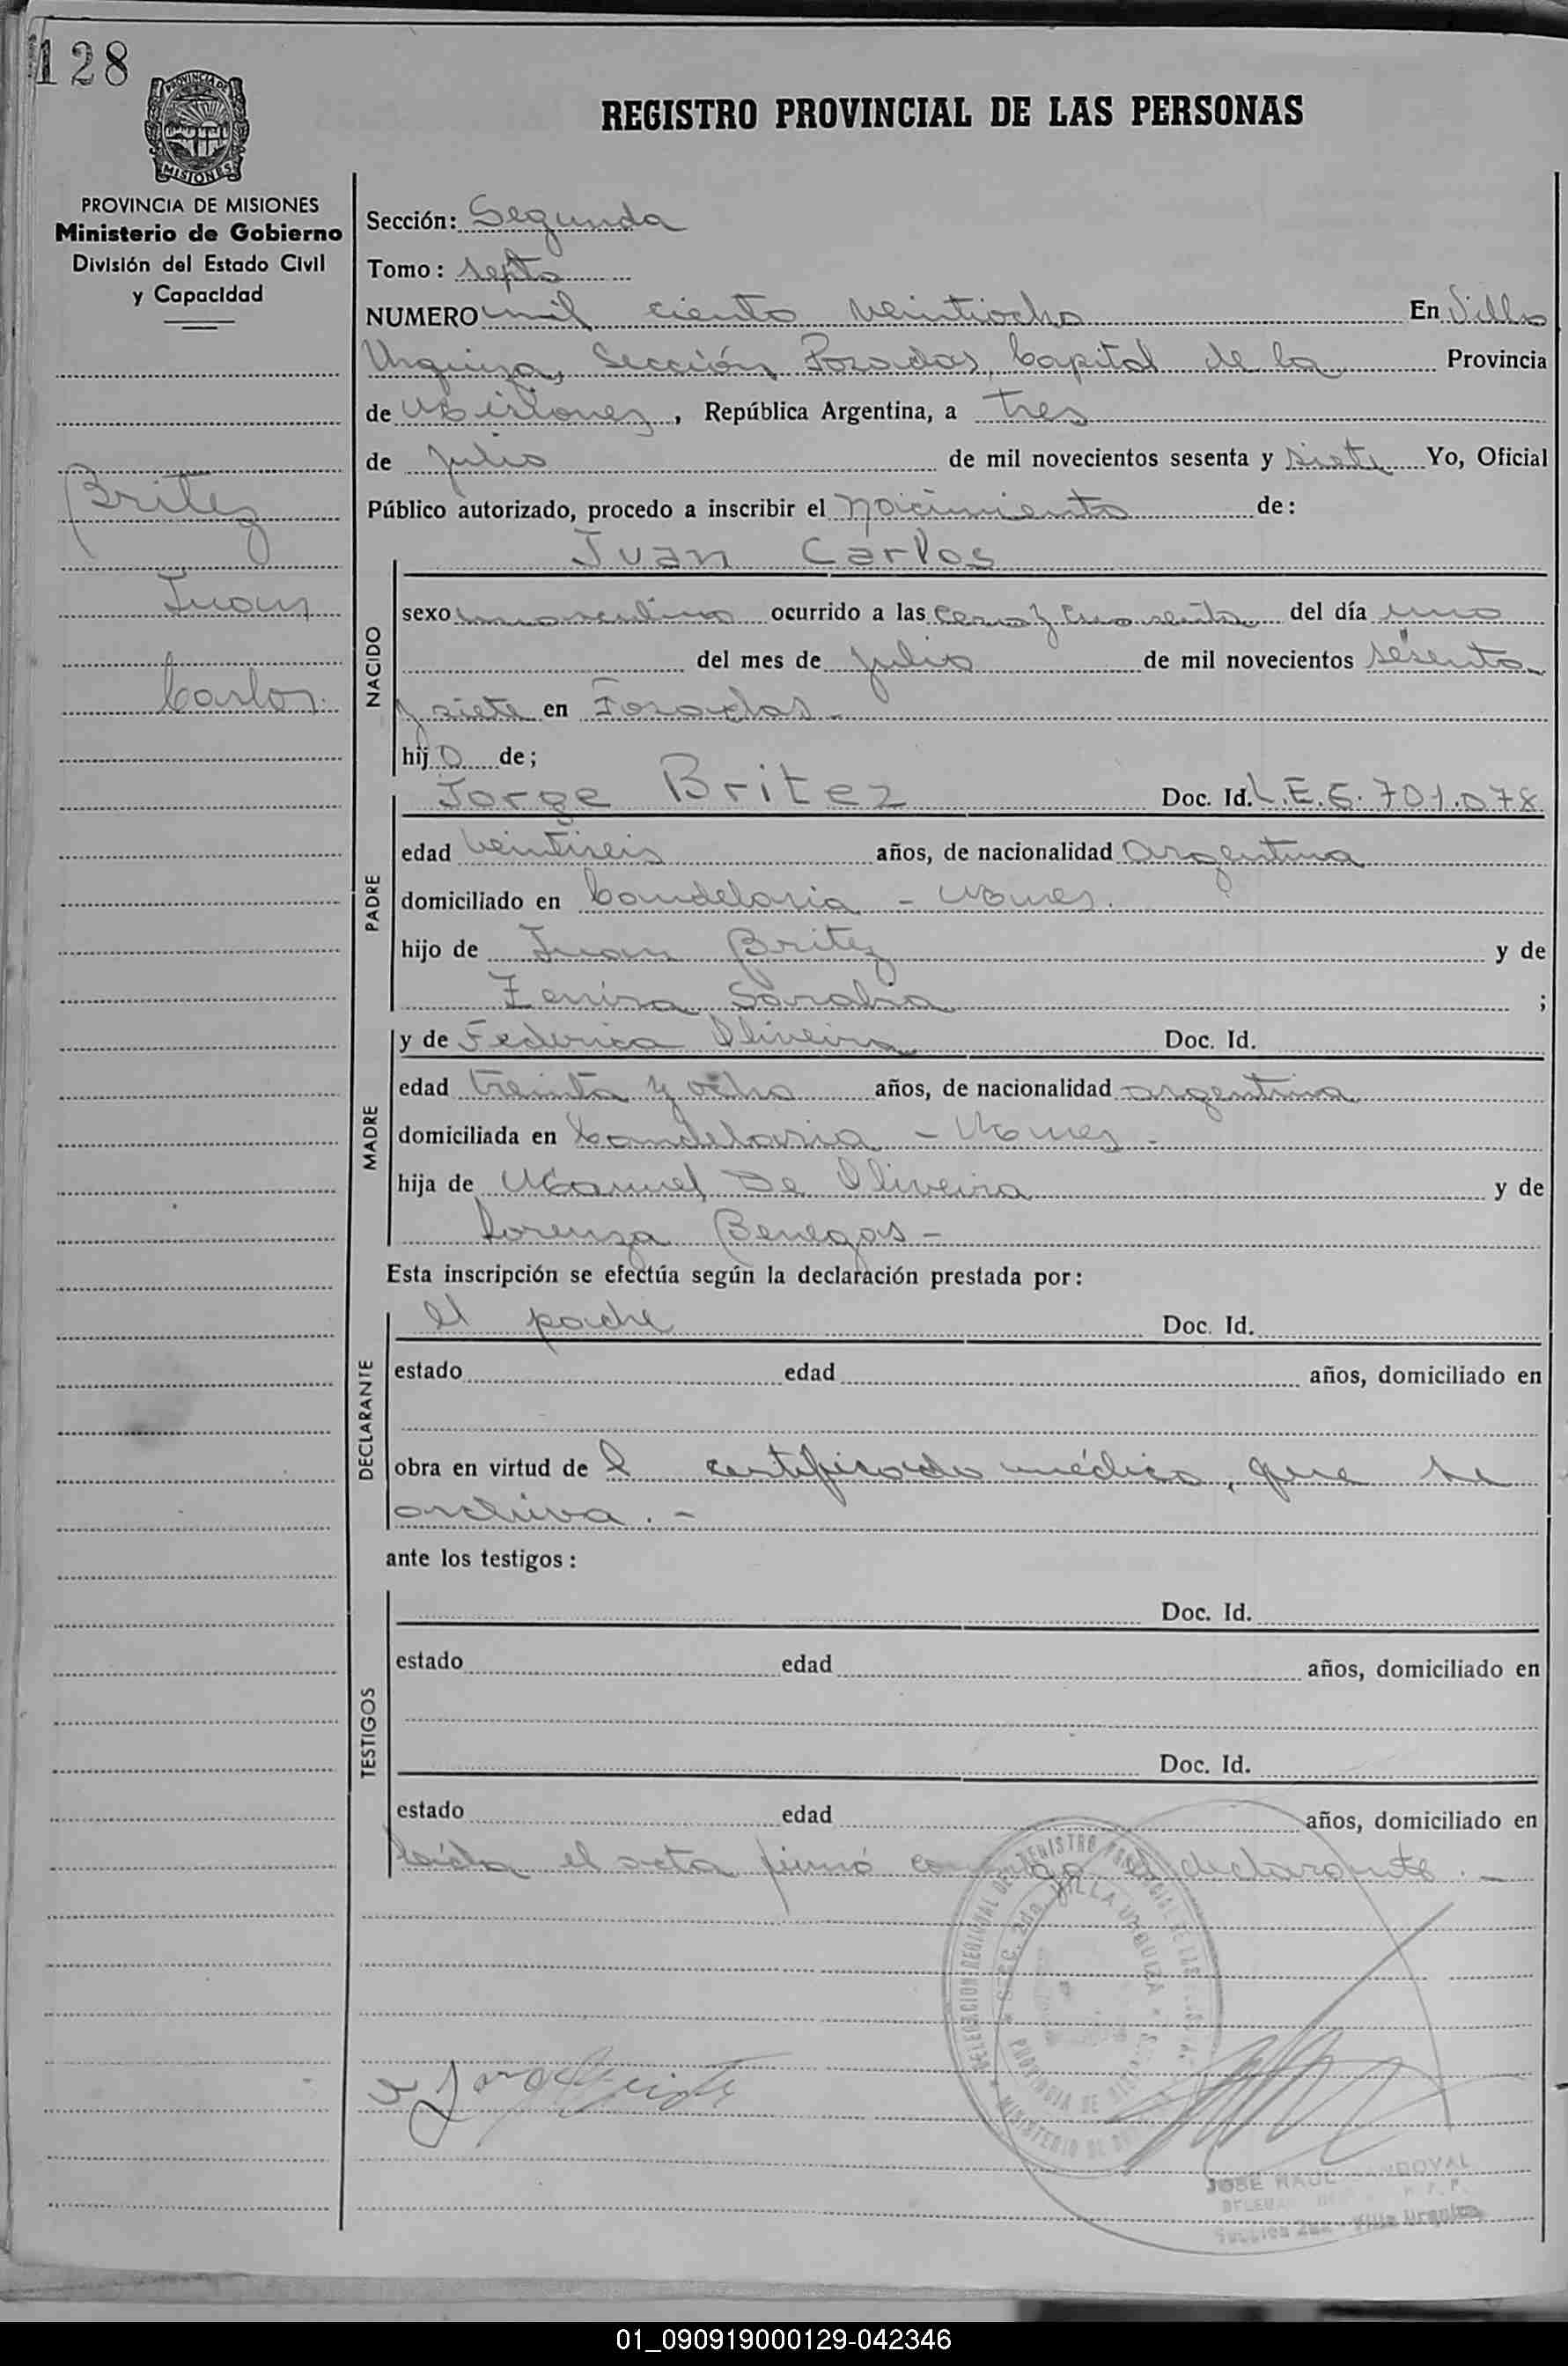 128
PROVINCIA DE MISIONES
REGISTRO PROVINCIAL DE LAS PERSONAS
PROVINCIA DE MISIONES
Ministerio de Gobierno
División del Estado Civil
y Capacidad
Britez
Juan
Carlos.
Sección: Segunda
Tomo: septo
NUMERO mil ciento veintiocho En Villa
Urquiza, Sección Posadas, Capital de la Provincia
de Misiones, República Argentina, a tres
de julio de mil novecientos sesenta y siete Yo, Oficial
Público autorizado, procedo a inscribir el nacimiento de:
Juan Carlos
NACIDO
sexo masculino ocurrido a las cero y cuarenta del día uno
del mes de julio de mil novecientos sesenta
y siete en Posadas.-
hijo de;
PADRE
Jorge Britez Doc. Id. L.E. 5.701.078
edad veintiseis años, de nacionalidad argentina
domiciliado en Candelaria - Mnes.
hijo de Juan Britez y de
Sarabia ;
MADRE
y de Federica Oliveira Doc. Id.
edad treinta y ocho años, de nacionalidad argentina
domiciliada en Candelaria - Mnes.-
hija de Manuel De Oliveira y de
Lorenza Benegas -
Esta inscripción se efectúa según la declaración prestada por:
DECLARANTE
el padre Doc. Id.
estado edad años, domiciliado en
obra en virtud de l certificado médico, que se
archiva.-
ante los testigos:
TESTIGOS
Doc. Id.
estado edad años, domiciliado en
Doc. Id.
estado edad años, domiciliado en
leída el acta firmó conmigo el declarante.-
DELEGACION REGIONAL DEL REGISTRO PROVINCIAL DE LAS
SECC. 2da. VILLA URQUIZA
PROVINCIA DE
MINISTERIO DE
JOSE RAUL SANDOVAL
Sección 2da - Villa Urquiza
01_090919000129-042346